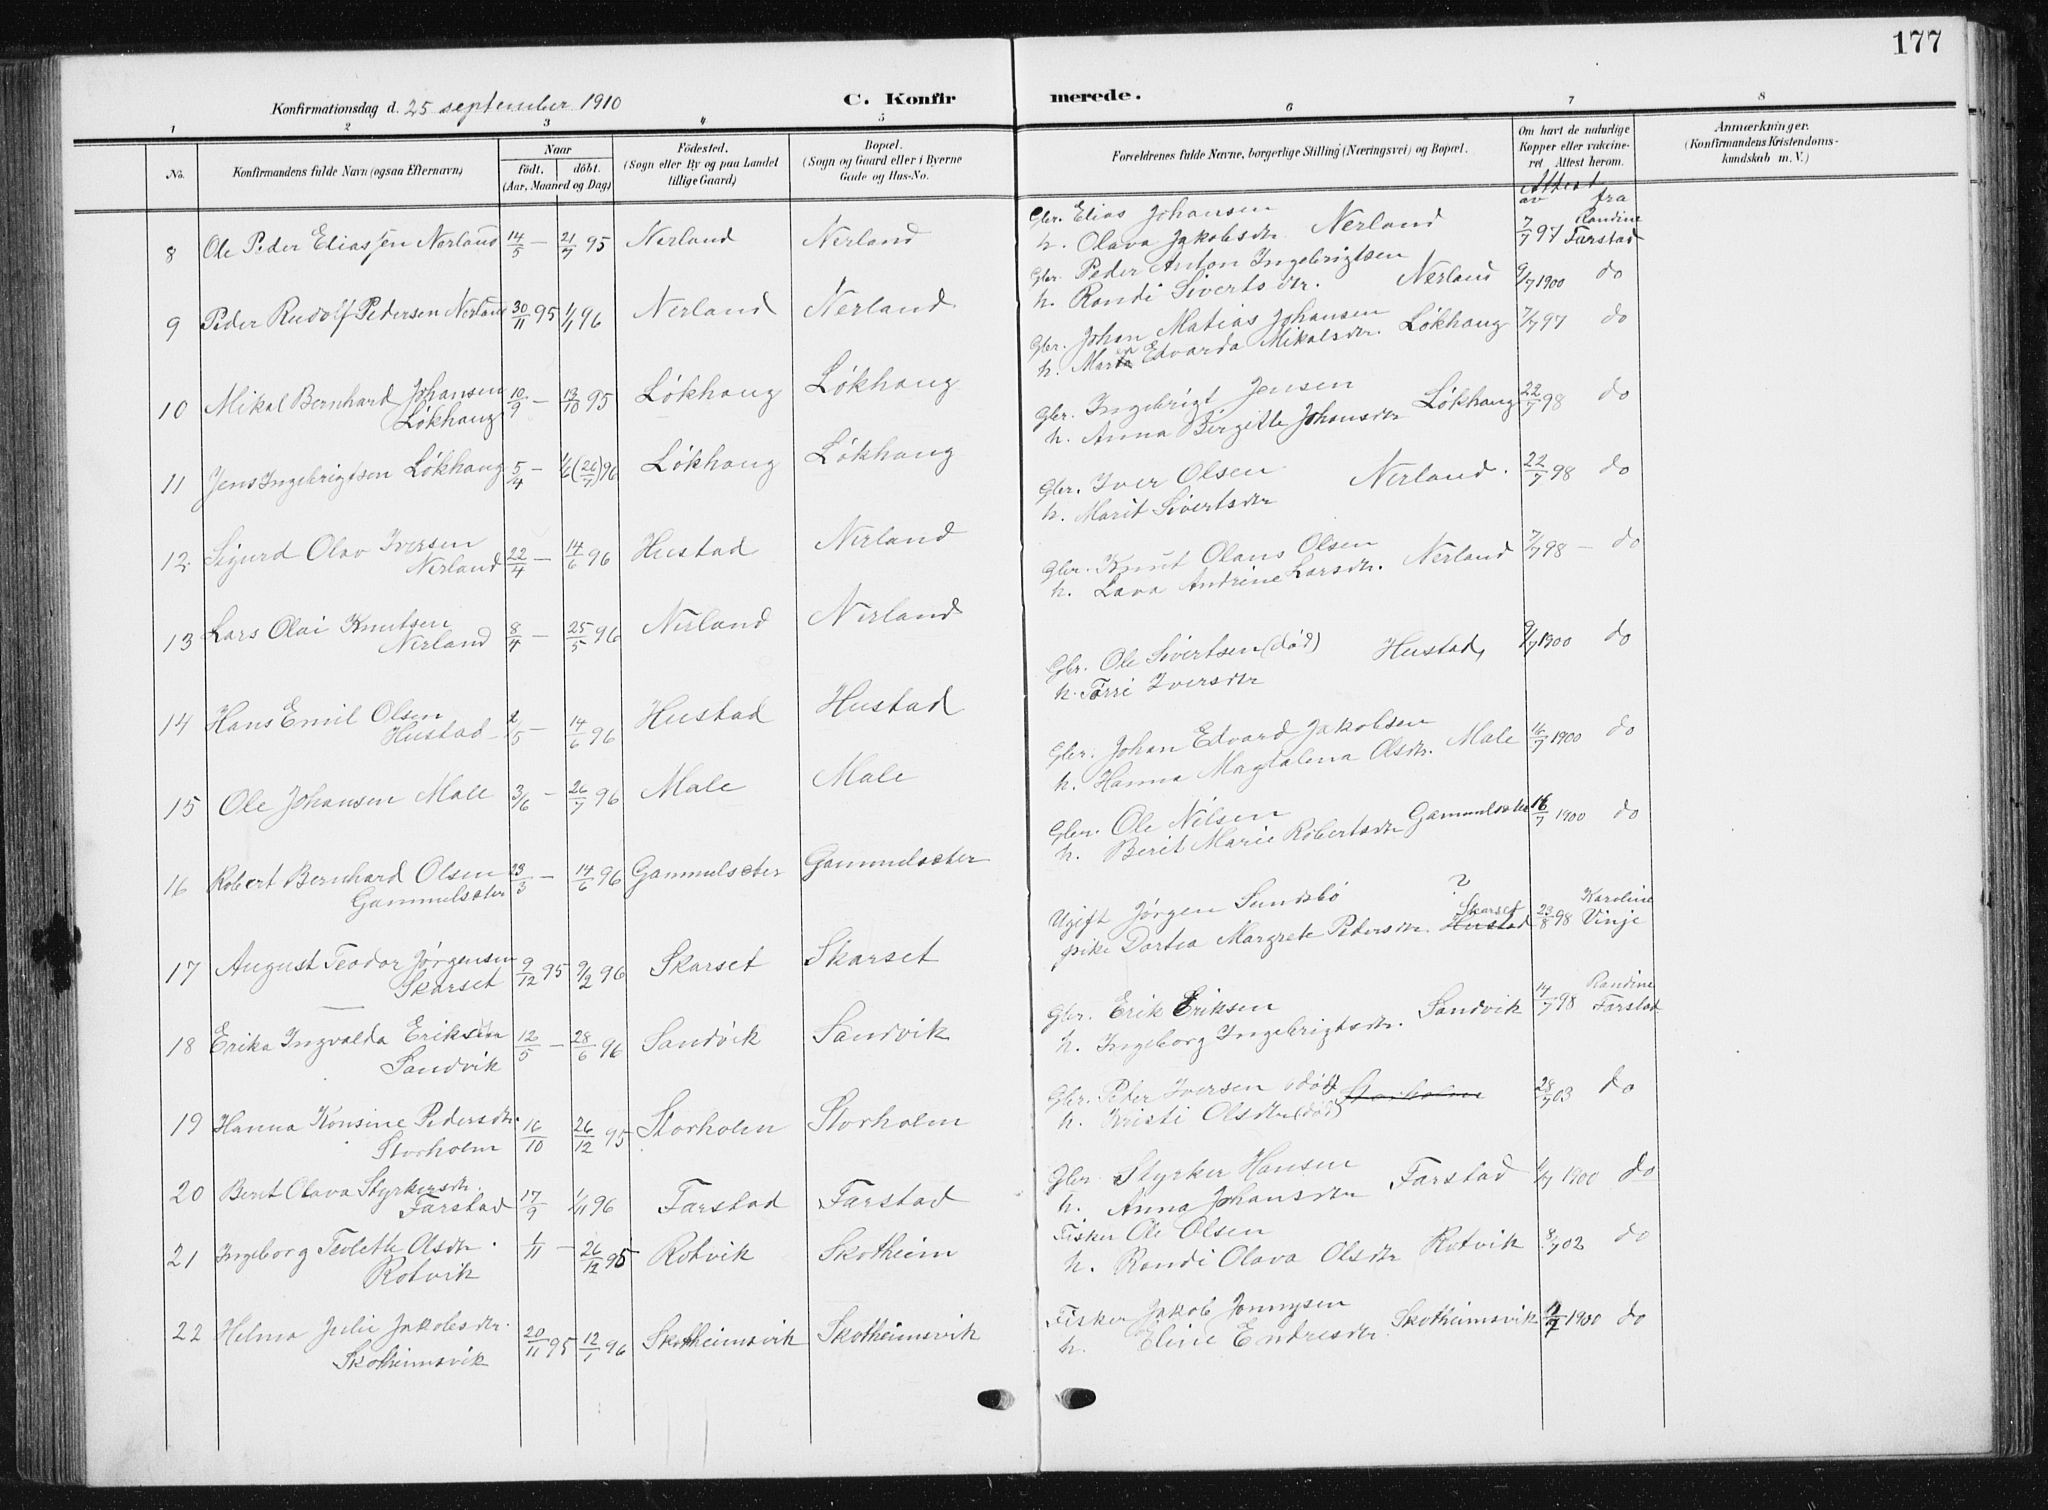 177
Konfirmationsdag d. 25 september 1910
C. Konfirmerede.
1 2 3 4 5 6 7 8
No.
Konfirmandens fulde Navn (ogsaa Efternavn)
Naar
födt. döbt.
(Aar, Maaned og Dag)
Födested.
(Sogn eller By og paa Landet
tillige Gaard)
Bopæl.
(Sogn og Gaard eller i Byerne
Gade og Hus-No.
Forældrenes fulde Navne, borgerlige Stilling (Næringsvei) og Bopæl.
Om havt de naturlige
Kopper eller vakcine-
ret. Attest herom.
Anmærkninger.
(Konfirmandens Kristendoms-
kundskab m. V.)
Attest
av fra
8 Ole Peder Eliassen Nerland 14/5 — 21/7 95 Nerland Nerland
Gbr. Elias Johansen
h. Olava Jakobsdtr Nerland 7/7 97 Randine Farstad
9 Peder Rudolf Pedersen Nerland 30/11 95 1/1 96 Nerland Nerland
Gbr. Peder Anton Ingebrigtsen
h. Randi Sivertsdtr. Nerland 9/7 1900 do
10 Mikal Bernhard Johansen
Lökhaug 10/9 — 13/10 95 Lökhaug Lökhaug
Gbr. Johan Matias Johansen
h. Maren Edvarda Mikalsdtr. Lökhaug 7/7 97 do
11 Jens Ingebrigtsen Lökhaug 5/4 — 1/6 (26/7) 96 Lökhaug Lökhaug
Gbr. Ingebrigt Jensen
h. Anna Birgitte Johansdtr Lökhaug 22/7 98 do
12 Sigurd Olav Iversen
Nerland 22/4 — 14/6 96 Hustad Nerland
Gbr. Iver Olsen
h. Marit Sivertsdtr Nerland. 22/7 98 do
13 Lars Olai Knutsen
Nerland 8/4 — 25/5 96 Nerland Nerland
Gbr. Knut Olaus Olsen
h. Lava Andrine Larsdtr. Nerland 7/7 98 — do
14 Hans Emil Olsen
Hustad 2/5 — 14/6 96 Hustad Hustad
Gbr. Ole Sivertsen (död) Hustad, 9/7 1900 do
h. Törri Iversdtr
15 Ole Johansen Male 3/6 — 26/7 96 Male Male
Gbr. Johan Edvard Jakobsen
h. Hanna Magdalena Olsdtr. Male 16/7 1900 do
16 Robert Bernhard Olsen
Gammelsæter 23/3 — 14/6 96 Gammelsæter Gammelsæter
Gbr. Ole Nilsen
h. Berit Marie Robertsdtr Gammelsæter 16/7 1900 do
17 August Teodor Jørgensen
Skarset 9/12 95 9/2 96 Skarset Skarset
Ugift Jørgen Sundsbö ?
pike Dortea Margrete Pedersdtr. Hustad Skarset 23/8 98 Karoline Vinje
18 Erika Ingvalda Eriksen
Sandvik 12/5 — 28/6 96 Sandvik Sandvik
Gbr. Erik Eriksen
h. Ingeborg Ingebrigtsdtr. Sandvik 14/7 98 Randine Farstad
19 Hanna Konsine Pedersdtr
Storholm 16/10 26/12 95 Storholm Storholm
Gbr. Peter Iversen (död) Storholm 28/7 03 do
h. Kristi Olsdtr (död)
20 Berit Olava Styrkersdtr.
Farstad 17/9 1/11 96 Farstad Farstad
Gbr. Styrker Hansen
h. Anna Johansdtr Farstad 9/7 1900 do
21 Ingeborg Teolette Olsdtr.
Rotvik 1/11 — 26/12 95 Rotvik Skotheim
Fisker Ole Olsen
h. Randi Olava Olsdtr Rotvik 8/7 02 do
22 Helma Julie Jakobsdtr.
Skotheimsvik 20/11 95 12/1 96 Skotheimsvik Skotheimsvik
Fisker Jakob Jonnysen
h. Eline Endresdtr. Skotheimsvik 1900 do